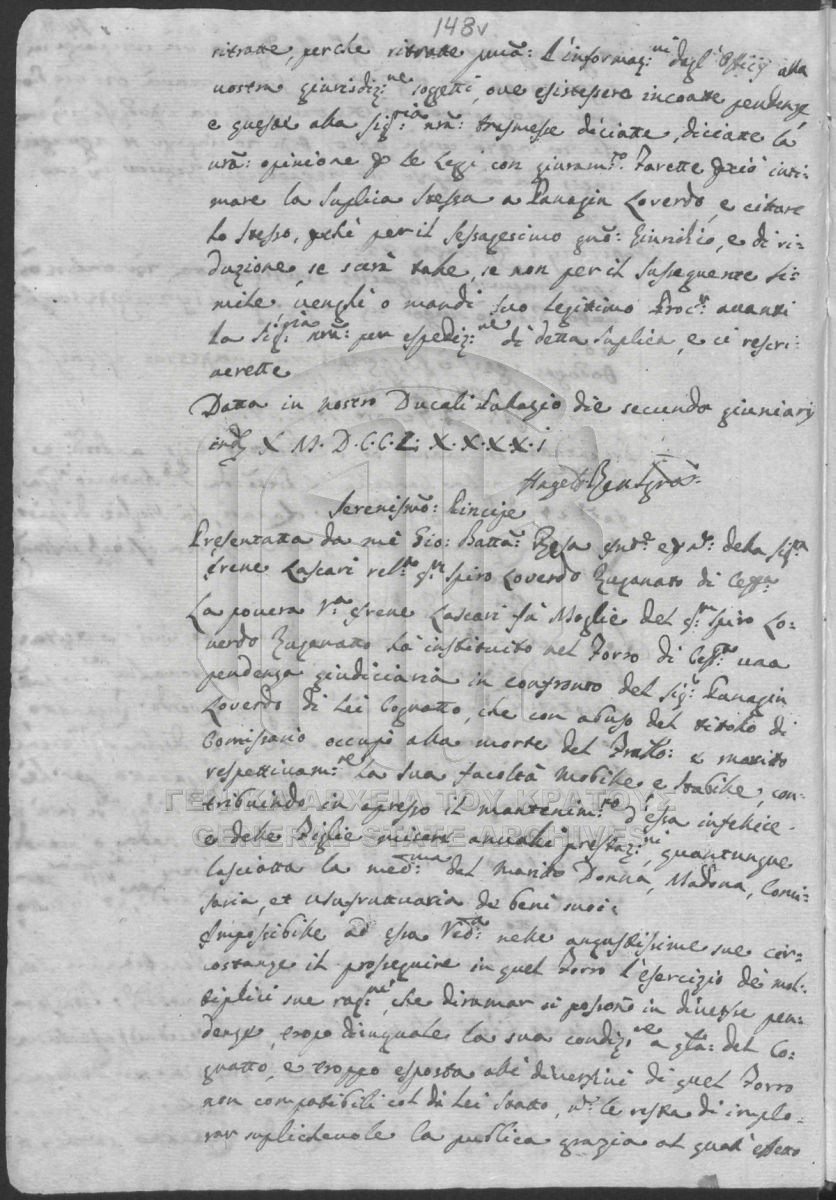 148v
ritratte, perche ritratte pma: l'informaz:ni degl'Officij alla
nostra giurisdiz:ne soggetti, ove esistessero incoatte pendenze
e queste alla Sig:ria nra: trasmesse diciate, diciate la
nra: opinione le Leggi con giuram:to Farette inti-
mare la suplica stessa a Panagin Loverdo, e cittare
lo stesso, pchè per il sessagesimo gno: Giuridico, e di ri-
duzione, se sarà tale, se non per il susseguente si-
mile venghi o mandi suo legittimo Proc:r avanti
la Sig:ria nra: per espediz:ne di detta suplica, e ci rescri-
verette
Datta in nostro Ducali Palazio die secunda
ind: X M.D.C.C.L.X.X.X.X.i
Serenissmo: Principe
Presentatta da me Gio: Batta: della Sig:ra
Irene Lascari rel:ta qm Spiro Loverdo di Ceffa:
La povera V:a Irene Lascari fù Moglie del qm Spiro Lo-
verdo hà instituito nel Forro di Ceff:a una
pendenza giudiciaria in confronto del Sig:r Panagin
Loverdo di Lei Cognatto, che con abuso del titolo di
Comissario occupò alla morte del Fratto: e marito
respettivam:te la sua facoltà mobile e stabile, con-
tribuindo in apresso il mantenim:to d'essa infelice
e delle Figlie misere annuali prestaz:ni, quantunque
lasciatta la med:ma del Marito Donna, Madona, Comi-
saria, et usufruttuaria de beni suoi:
Impossibile ad essa Ved:a nelle angustissime sue cir-
costanze il proseguire in quel Forro l'esercizio de mol-
tiplici sue rag:ni, che diramar si possono in diverse pen-
denze, tropo dinquale la sua condiz:ne a qta: del Co-
gnatto, e troppo esposta alli di quel Forro
non compatibili col di Lei statto, le resta di implo-
rar suplichevole la publica grazia al qual effetto
ΓΕΝΙΚΑ ΑΡΧΕΙΑ ΤΟΥ ΚΡΑΤΟΥΣ
GENERAL STATE ARCHIVES